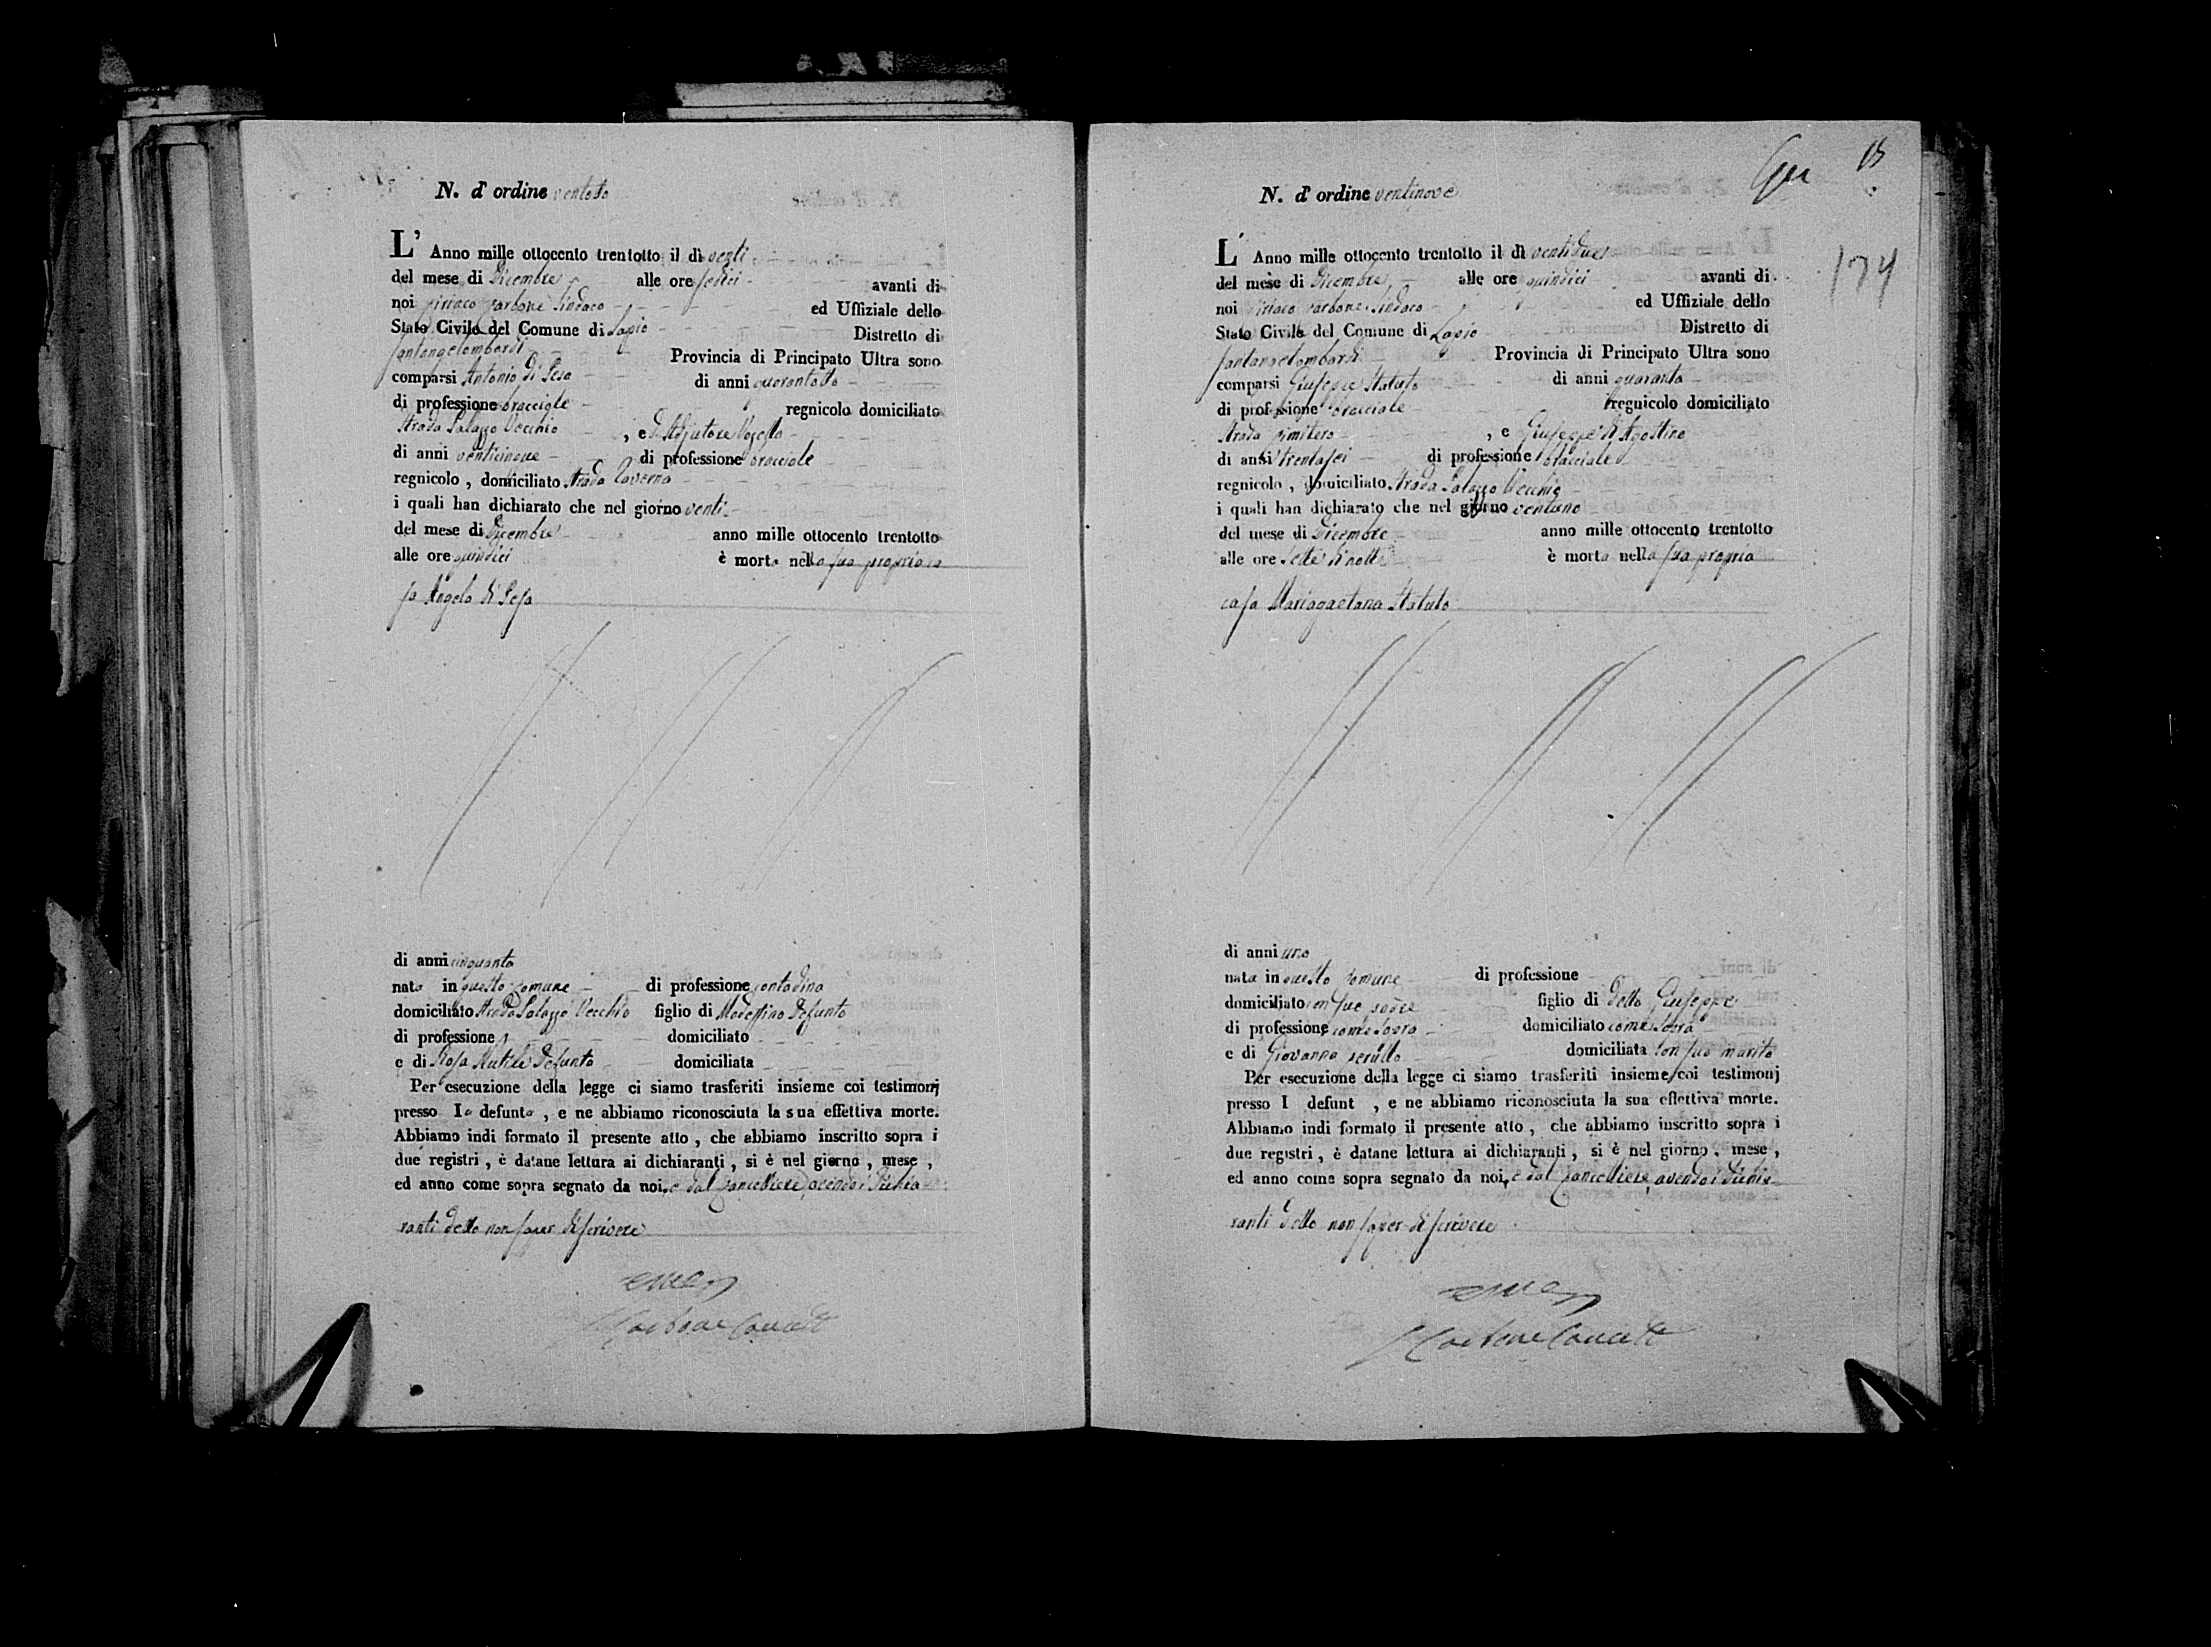 N. d' ordine ventotto
L' Anno mille ottocento trentotto il dì venti
del mese di Dicembre alle ore sedici avanti di
noi Ciriaco Carbone Sindaco ed Uffiziale dello
Stato Civile del Comune di Lapio Distretto di
Santangelombardi Provincia di Principato Ultra sono
comparsi Antonio di Feso di anni quarantotto
di professione bracciale regnicolo domiciliato
Strada Palazzo Vecchio , e
di anni venticinque di professione bracciale
regnicolo , domiciliato Strada Taverna
i quali han dichiarato che nel giorno venti
del mese di Dicembre anno mille ottocento trentotto
alle ore quindici è morta nella sua propria ca
sa Angela di Feso
di anni cinquanta
nata in questo Comune di professione contadina
domiciliato Strada Palazzo Vecchio figlio di Modestino Defunto
di professione domiciliato
e di Rosa Defunta domiciliata
Per esecuzione della legge ci siamo trasferiti insieme coi testimonj
presso la defunta , e ne abbiamo riconosciuta la sua effettiva morte.
Abbiamo indi formato il presente atto , che abbiamo inscritto sopra i
due registri , è datane lettura ai dichiaranti , si è nel giorno , mese ,
ed anno come sopra segnato da noi, e dal Cancelliere avendo i dichia
ranti detto non saper di scrivere
Carbone
Gen 15
174
N. d' ordine ventinove
L' Anno mille ottocento trentotto il dì ventidue
del mese di Dicembre alle ore quindici avanti di
noi Ciriaco Carbone Sindaco ed Uffiziale dello
Stato Civile del Comune di Lapio Distretto di
Santangelombardi Provincia di Principato Ultra sono
comparsi Giuseppe Statuto di anni quaranta
di professione bracciale regnicolo domiciliato
Strada Cimitero , e Giuseppe d'Agostino
di anni trentasei di professione bracciale
regnicolo , domiciliato Strada Palazzo Vecchio
i quali han dichiarato che nel giorno ventuno
del mese di Dicembre anno mille ottocento trentotto
alle ore sette di notte è morta nella sua propria
casa Mariagaetana Statuto
di anni uno
nata in questo Comune di professione
domiciliato con suo padre figlio di detto Giuseppe
di professione come sopra domiciliato come sopra
e di Giovanna Cerullo domiciliata con suo marito
Per esecuzione della legge ci siamo trasferiti insieme coi testimonj
presso l defunt , e ne abbiamo riconosciuta la sua effettiva morte.
Abbiamo indi formato il presente atto , che abbiamo inscritto sopra i
due registri , è datane lettura ai dichiaranti , si è nel giorno , mese ,
ed anno come sopra segnato da noi, e dal Cancelliere avendo i dichia
ranti detto non saper di scrivere
Carbone